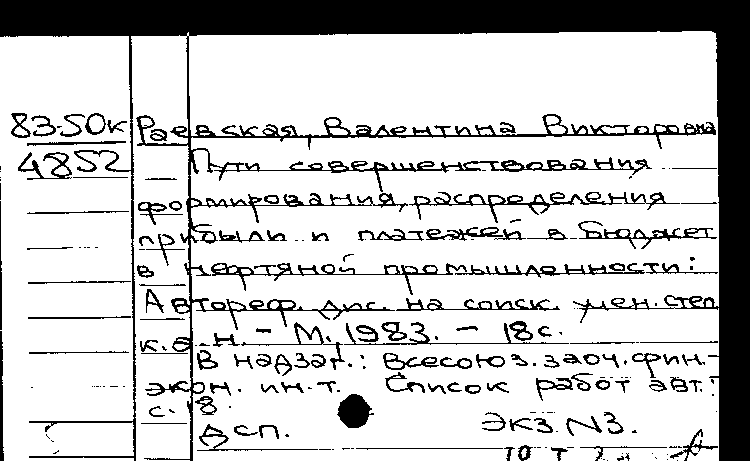 83-50к Раевская, Валентина Викторовна
4852 Пути совершенствования
формирования, распределения
прибыли и платежей в бюджет
в нефтяной промышленности:
Автореф. дис. на соиск. учен. степ.
к.э.н. - М., 1983. - 18 с.
В надзаг.: Всесоюз. заоч. фин.-
экон. ин-т. Список работ авт.:
с. 18.
ДСП. Экз. N3.